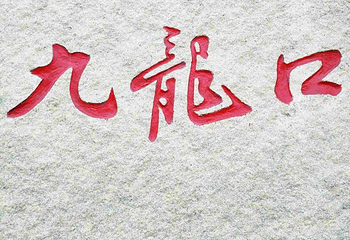 九龍口